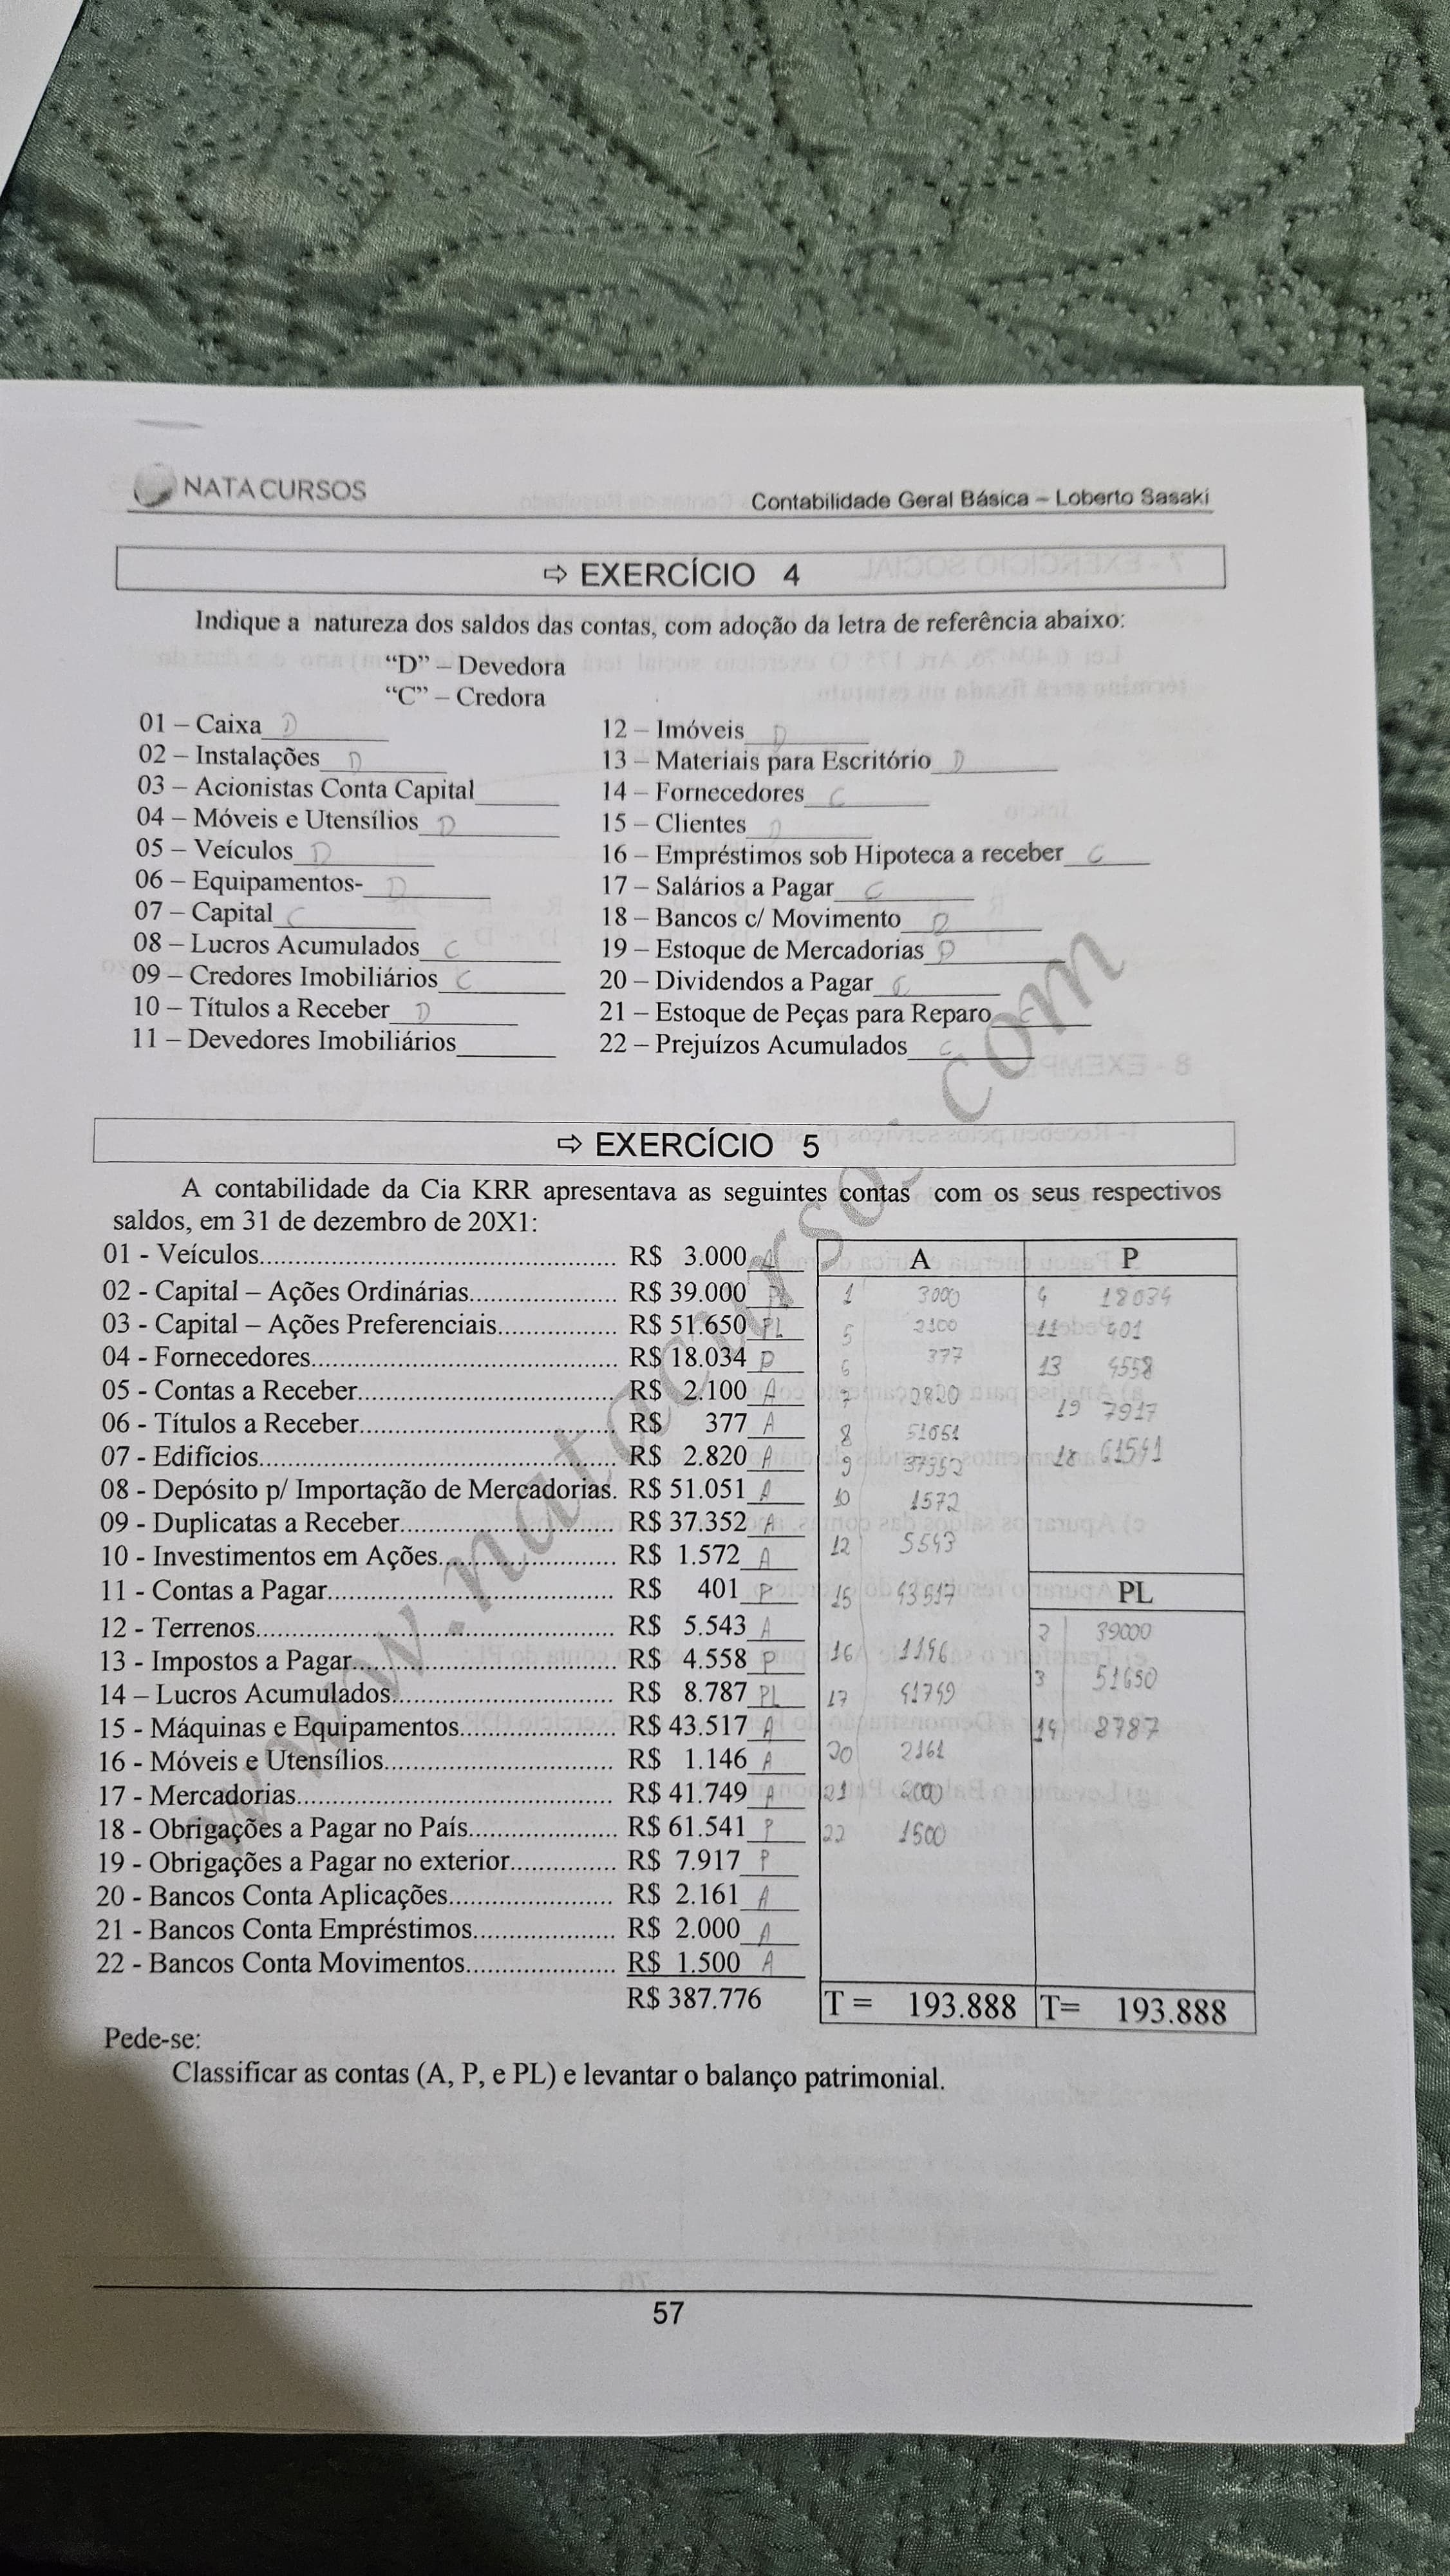 NATA CURSOS
Contabilidade Geral Básica – Loberto Sasaki
⇨ EXERCÍCIO 4
Indique a natureza dos saldos das contas, com adoção da letra de referência abaixo:
“D” – Devedora
“C” – Credora
01 – Caixa D
02 – Instalações D
03 – Acionistas Conta Capital
04 – Móveis e Utensílios D
05 – Veículos D
06 – Equipamentos- D
07 – Capital C
08 – Lucros Acumulados C
09 – Credores Imobiliários C
10 – Títulos a Receber D
11 – Devedores Imobiliários
12 – Imóveis D
13 – Materiais para Escritório D
14 – Fornecedores C
15 – Clientes D
16 – Empréstimos sob Hipoteca a receber C
17 – Salários a Pagar C
18 – Bancos c/ Movimento D
19 – Estoque de Mercadorias D
20 – Dividendos a Pagar C
21 – Estoque de Peças para Reparo C
22 – Prejuízos Acumulados C
⇨ EXERCÍCIO 5
A contabilidade da Cia KRR apresentava as seguintes contas com os seus respectivos
saldos, em 31 de dezembro de 20X1:
01 - Veículos R$ 3.000 A
02 - Capital – Ações Ordinárias R$ 39.000 PL
03 - Capital – Ações Preferenciais R$ 51.650 PL
04 - Fornecedores R$ 18.034 P
05 - Contas a Receber R$ 2.100 A
06 - Títulos a Receber R$ 377 A
07 - Edifícios R$ 2.820 A
08 - Depósito p/ Importação de Mercadorias. R$ 51.051 A
09 - Duplicatas a Receber R$ 37.352 A
10 - Investimentos em Ações R$ 1.572 A
11 - Contas a Pagar R$ 401 P
12 - Terrenos R$ 5.543 A
13 - Impostos a Pagar R$ 4.558 P
14 – Lucros Acumulados R$ 8.787 PL
15 - Máquinas e Equipamentos R$ 43.517 A
16 - Móveis e Utensílios R$ 1.146 A
17 - Mercadorias R$ 41.749 A
18 - Obrigações a Pagar no País R$ 61.541 P
19 - Obrigações a Pagar no exterior R$ 7.917 P
20 - Bancos Conta Aplicações R$ 2.161 A
21 - Bancos Conta Empréstimos R$ 2.000 A
22 - Bancos Conta Movimentos R$ 1.500 A
R$ 387.776
A
1 3000
5 2100
6 377
7 2820
8 51051
9 37352
10 1572
12 5543
15 43517
16 1146
17 41749
20 2161
21 2000
22 1500
T = 193.888
P
4 18034
11 401
13 4558
19 7917
18 61541
PL
2 39000
3 51650
14 8787
T= 193.888
Pede-se:
Classificar as contas (A, P, e PL) e levantar o balanço patrimonial.
57
www.natacursos.com